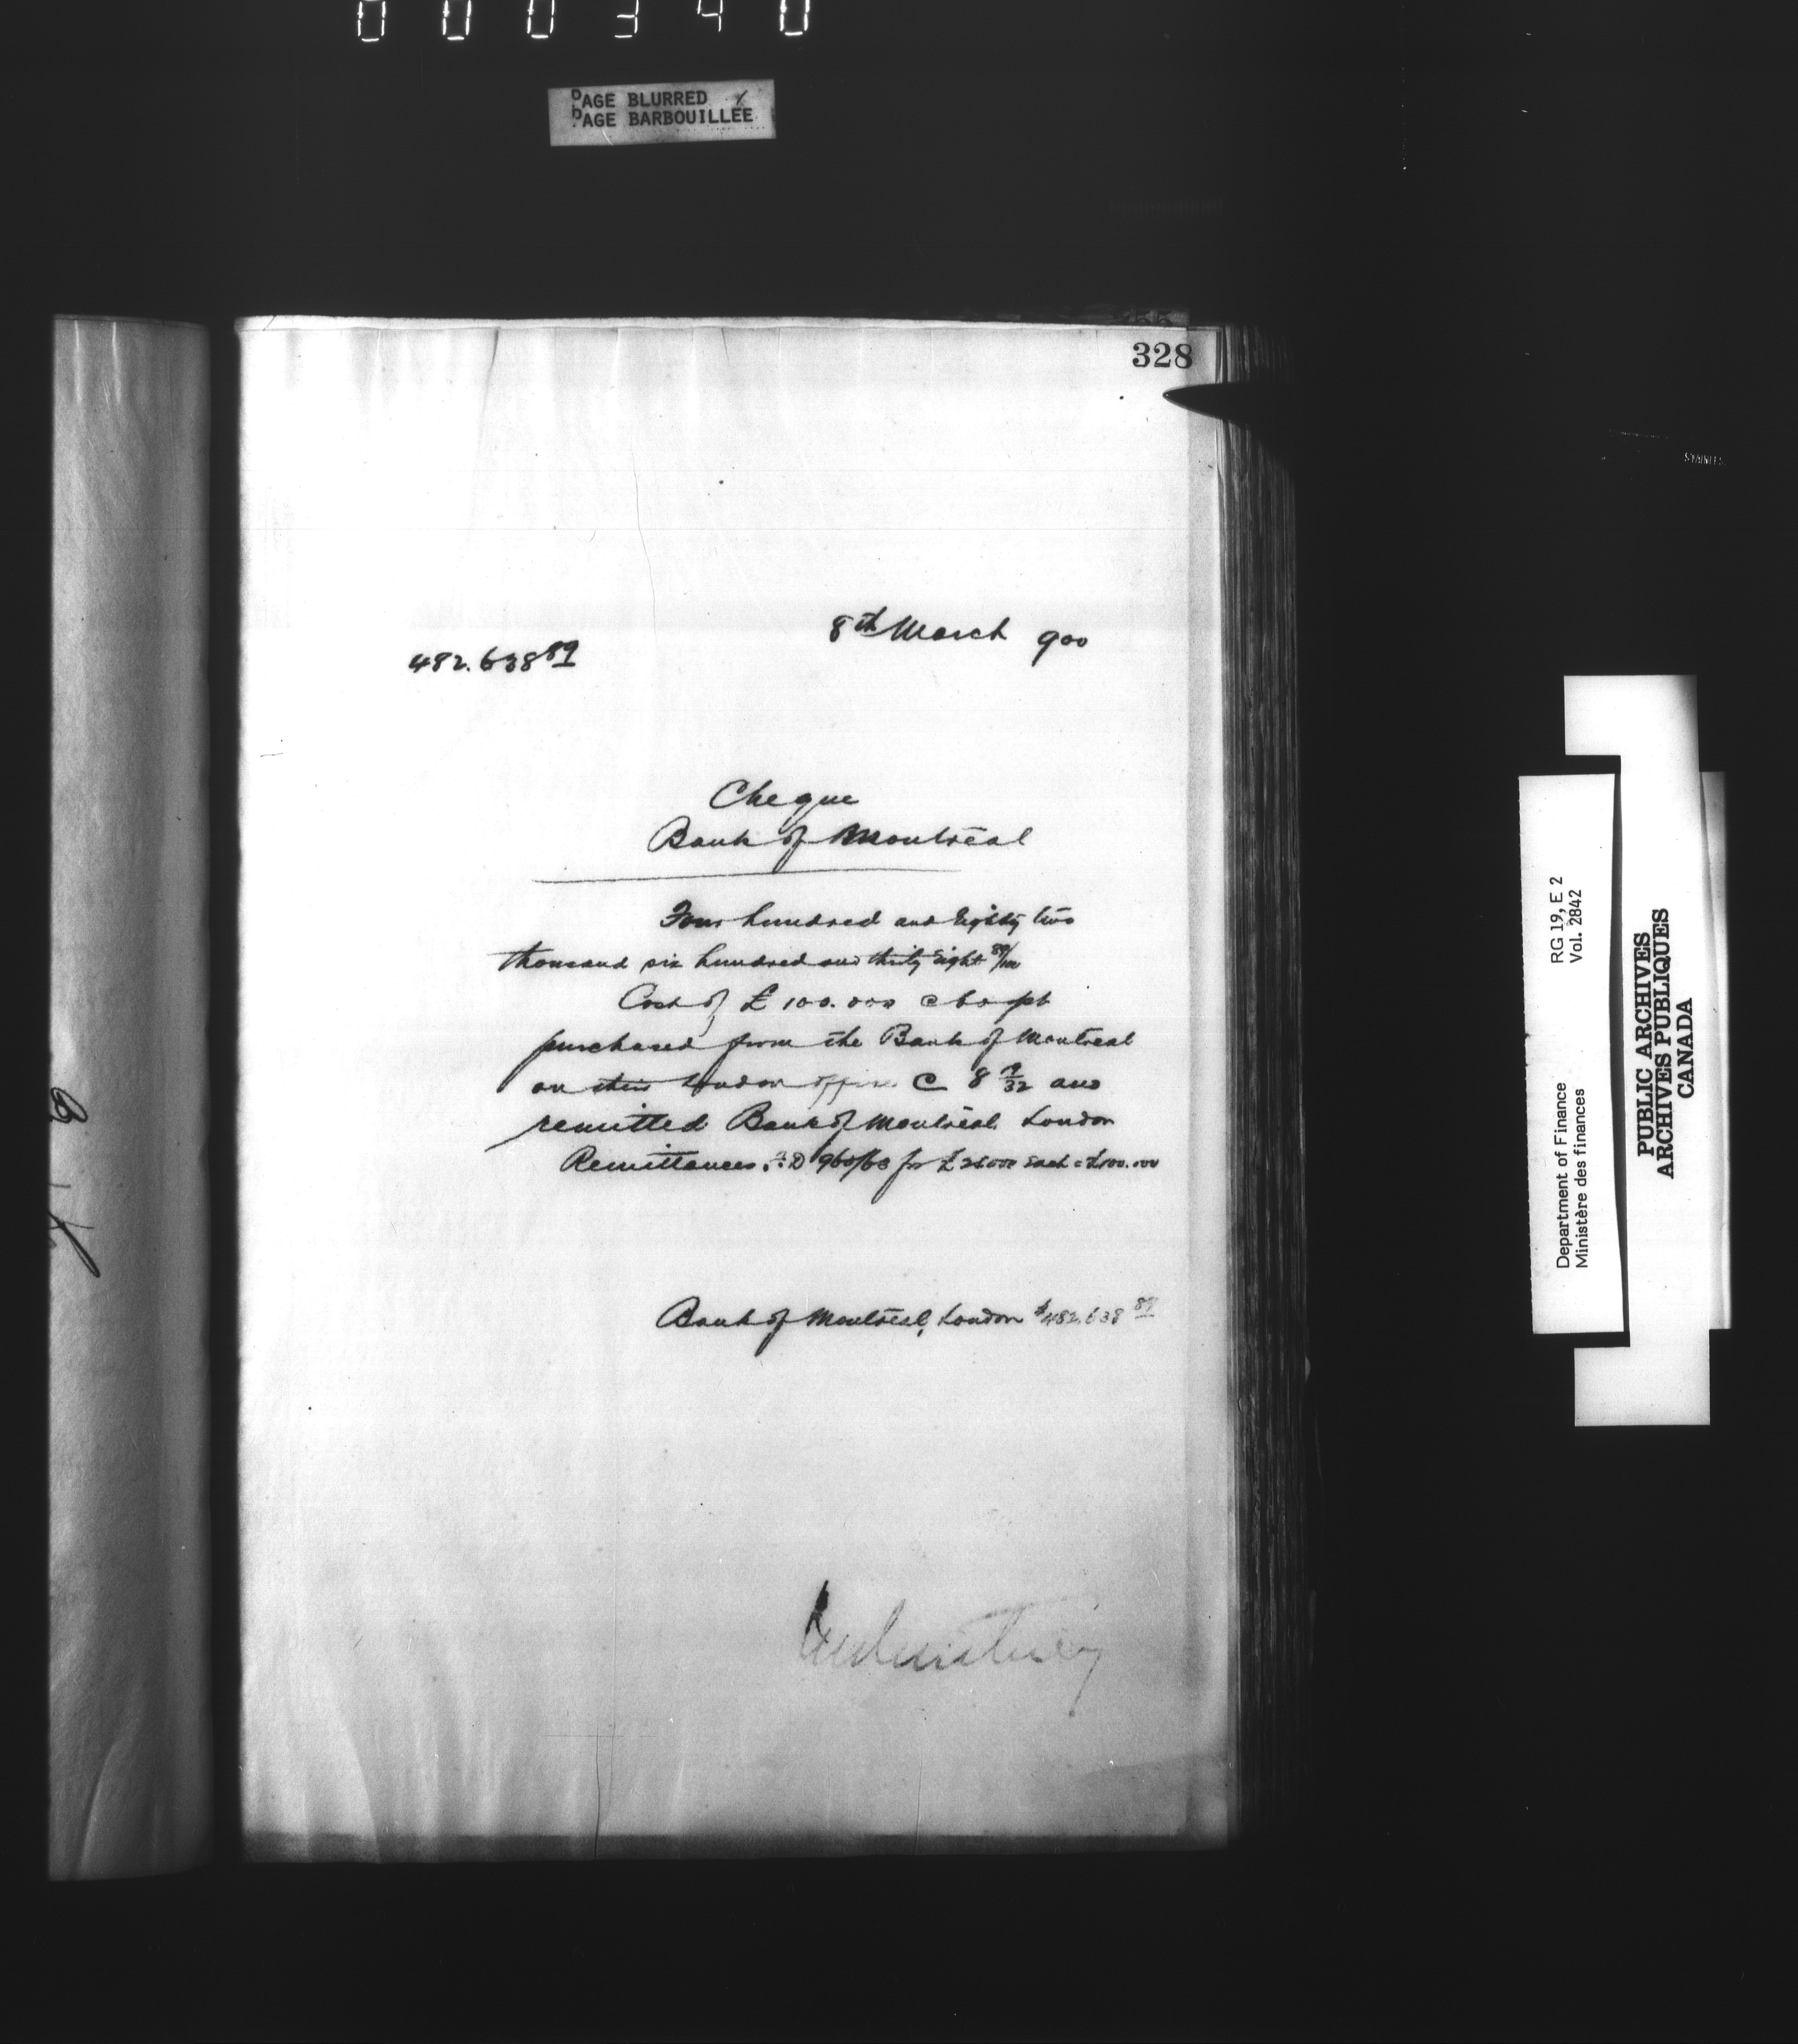 000340
PAGE BLURRED
PAGE BARBOUILLÉE
328
8th March 900
482.638 89
Cheque
Bank of Montreal
Four hundred and Eighty two
thousand six hundred and thirty Eight 89/100
Cost of £ 100.000 @ 60
purchased from the Bank of Montreal
on their London office @ 8 19/32 and
remitted Bank of Montreal London
Remittances 960/63 for £ 25000 Each = £100.000
Bank of Montreal, London $482.638 89
RG 19, E 2
Vol. 2842
Department of Finance
Ministère des finances
PUBLIC ARCHIVES
ARCHIVES PUBLIQUES
CANADA